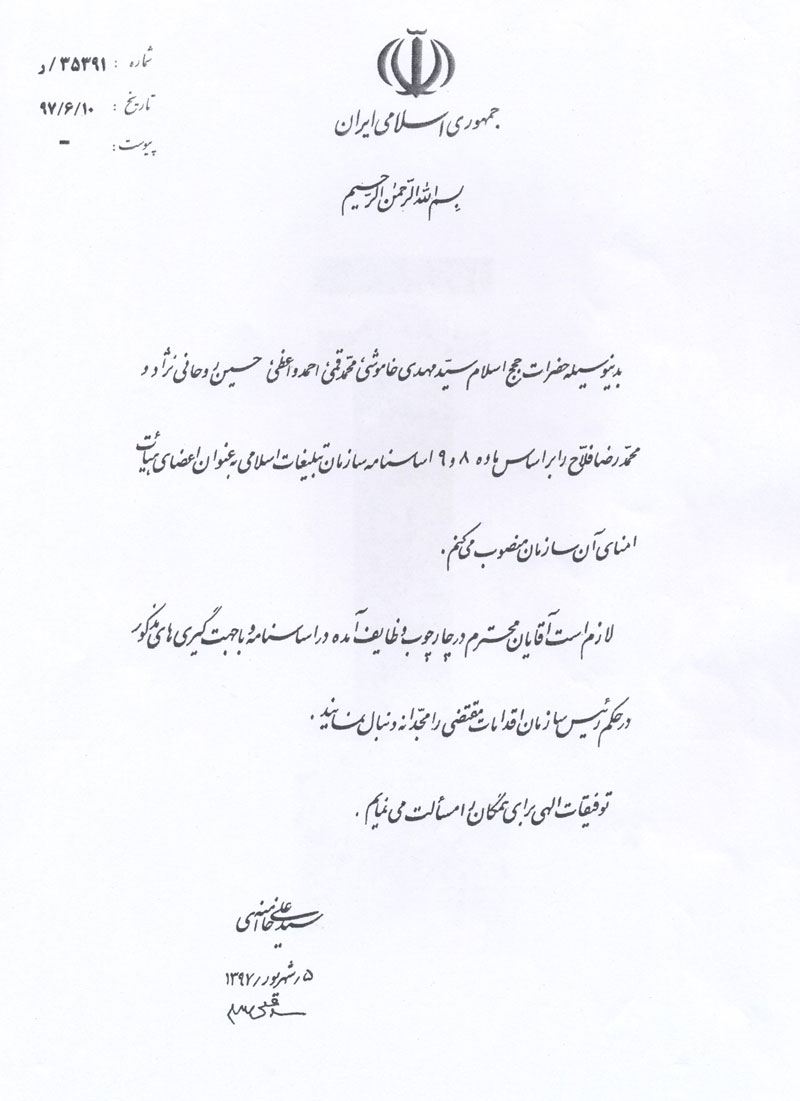 شماره : ۳۵۳۹۱/د
تاریخ : ۹۷/۶/۱۰
پیوست: -
جمهوری اسلامی ایران
بسم الله الرّحمن الرّحیم
بدینوسیله حضرات حجج اسلام سیّد مهدی خاموشی، محمّد قمی، احمد واعظی، حسین روحانی نژاد و
محمّدرضا فلّاح را بر اساس ماده ۸ و ۹ اساسنامه سازمان تبلیغات اسلامی به عنوان اعضای هیأت
امنای آن سازمان منصوب می‌کنم.
لازم است آقایان محترم در چارچوب وظایف آمده در اساسنامه و با جهت گیری های مذکور
در حکم رئیس سازمان اقدامات مقتضی را مجدّانه دنبال نمایند.
توفیقات الهی برای همگان را مسألت می نمایم.
سیّدعلی خامنه‌ای
۵/شهریور/۱۳۹۷